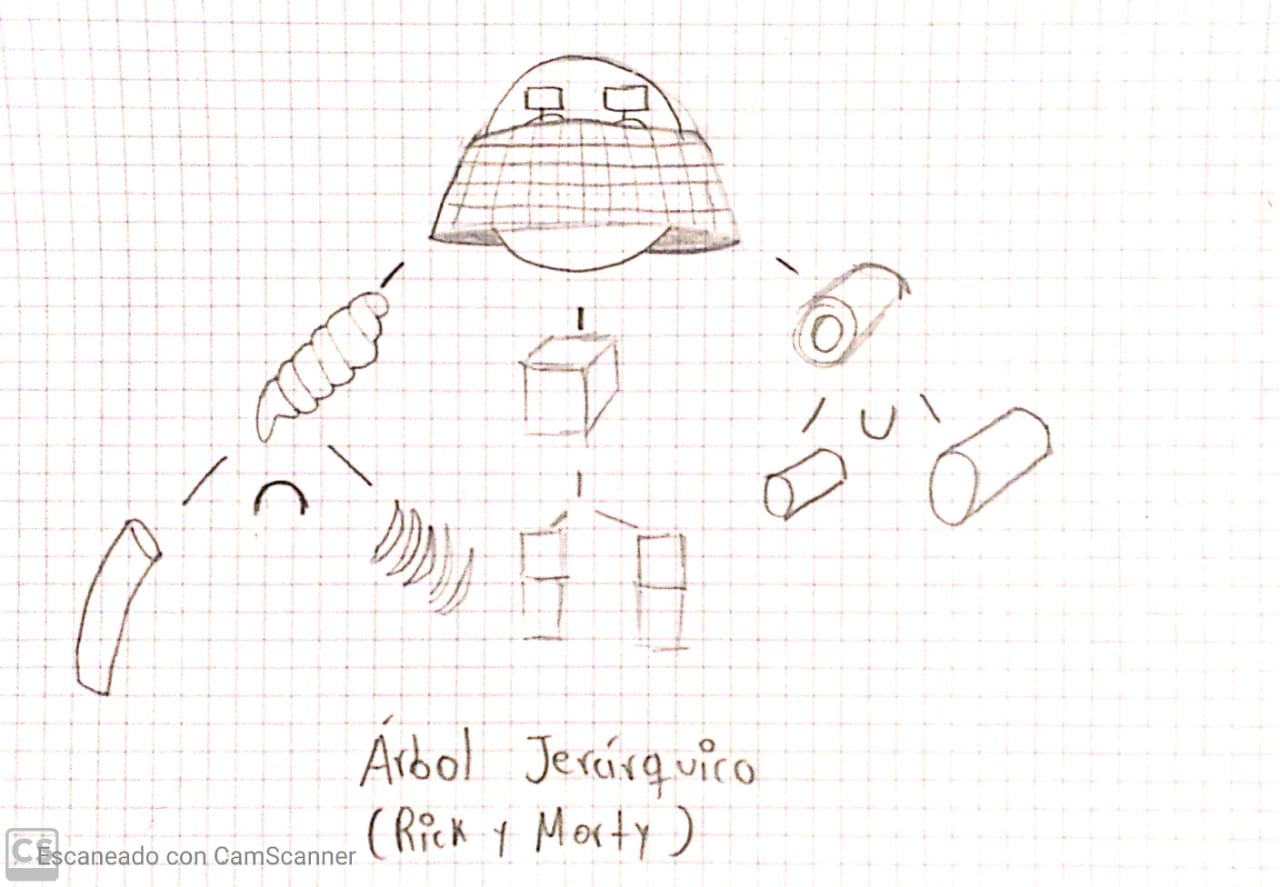 Árbol Jerárquico
(Rick y Morty)
CS Escaneado con CamScanner